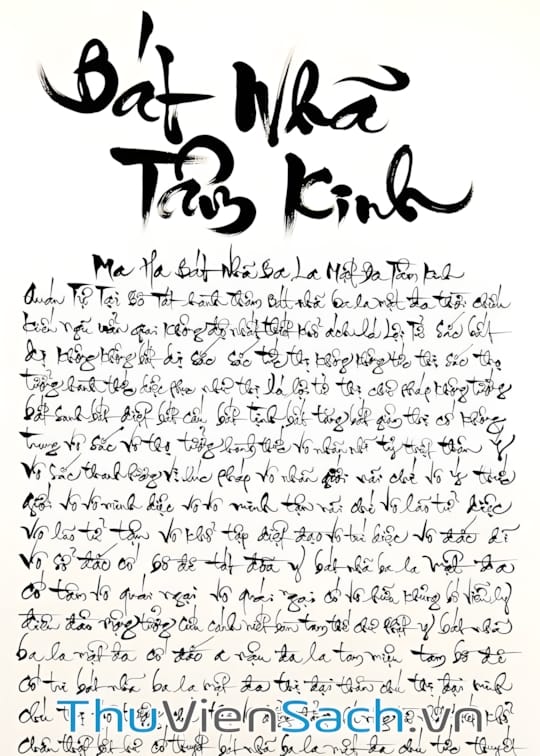 Bát Nhã
Tâm Kinh
Ma Ha Bát Nhã Ba La Mật Đa Tâm Kinh
Quán Tự Tại Bồ Tát hành thâm Bát nhã ba la mật đa thời chiếu
kiến ngũ uẩn giai không độ nhất thiết khổ ách xá Lợi Tử Sắc bất
dị không không bất dị sắc sắc tức thị không không tức thị sắc thọ
tưởng hành thức diệc phục như thị xá lợi tử thị chư pháp không tướng
bất sanh bất diệt bất cấu bất tịnh bất tăng bất giảm thị cố không
trung vô sắc vô thọ tưởng hành thức vô nhãn nhĩ tỷ thiệt thân ý
vô sắc thanh hương vị xúc pháp vô nhãn giới nãi chí vô ý thức
giới vô vô minh diệc vô vô minh tận nãi chí vô lão tử diệc
vô lão tử tận vô khổ tập diệt đạo vô trí diệc vô đắc dĩ
vô sở đắc cố bồ đề tát đõa y bát nhã ba la mật đa
cố tâm vô quái ngại vô quái ngại cố vô hữu khủng bố viễn ly
điên đảo mộng tưởng cứu cánh niết bàn tam thế chư phật y bát nhã
ba la mật đa cố đắc a nậu đa la tam miệu tam bồ đề
cố tri bát nhã ba la mật đa thị đại thần chú thị đại minh
chú thị
ThuVienSach.vn
chân thật bất hư cố thuyết bát nhã ba la mật đa chú tức thuyết